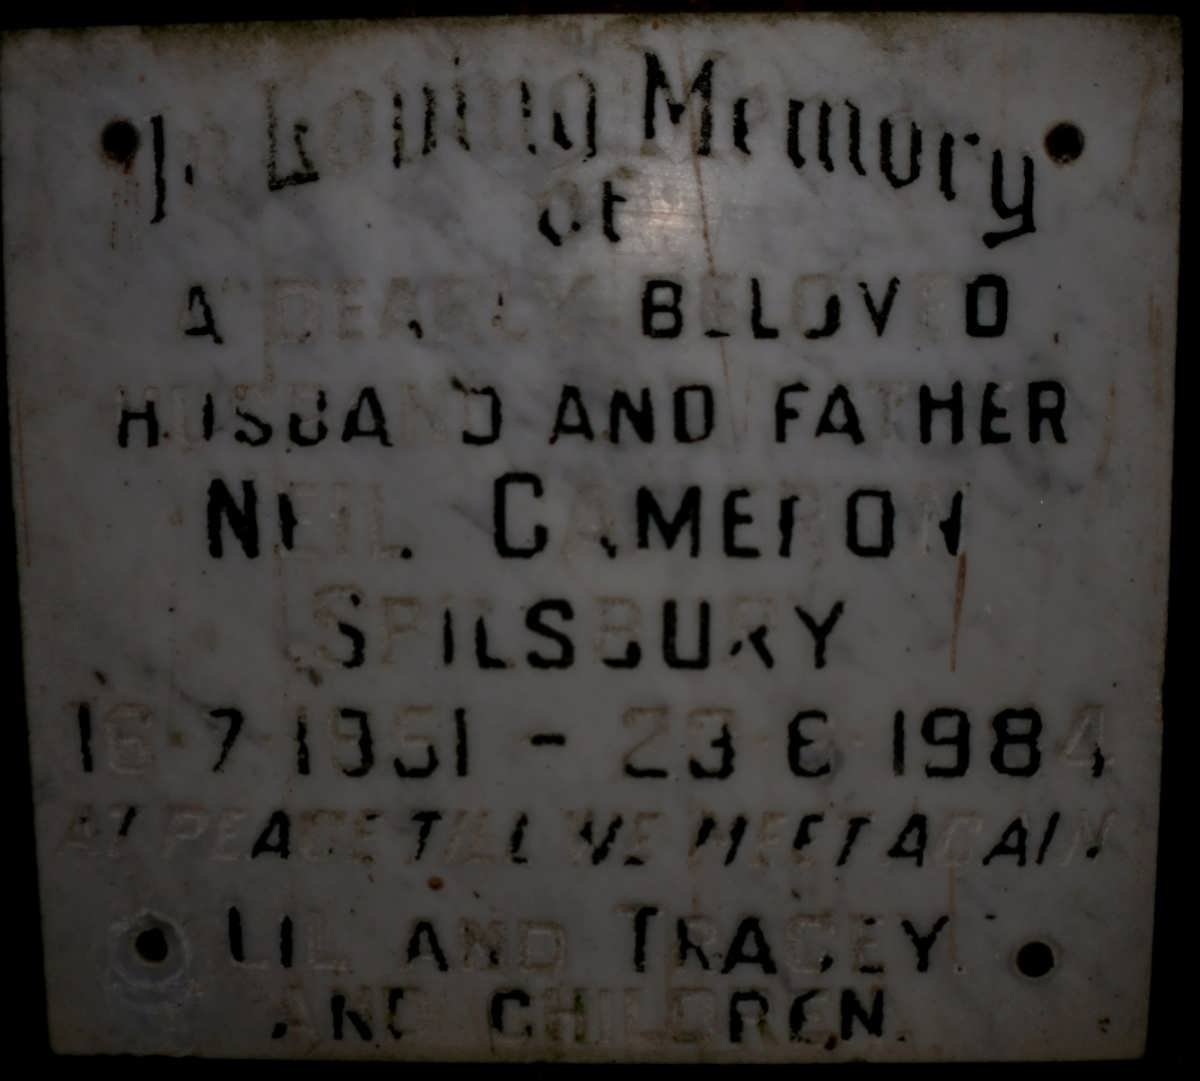 In Loving Memory
of
A DEARLY BELOVED
HUSBAND AND FATHER
NEIL CAMERON
SPILSBURY
16·7·1951 - 23·6·1984
AT PEACE TILL WE MEET AGAIN
LIL AND TRACEY
AND CHILDREN.